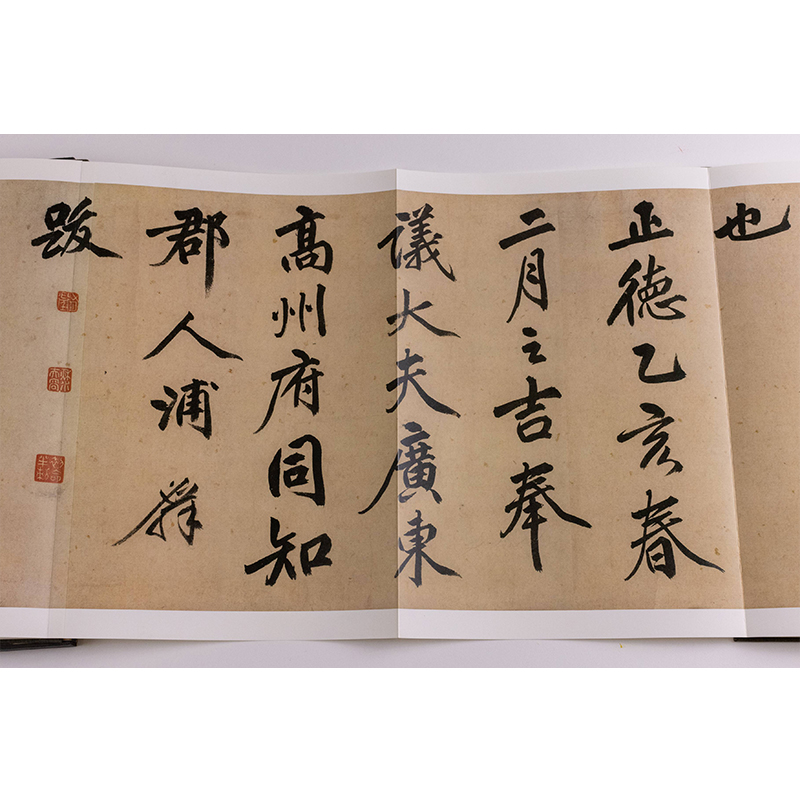 也
正德乙亥春
二月之吉奉
議大夫廣東
高州府同知
郡人浦
跋